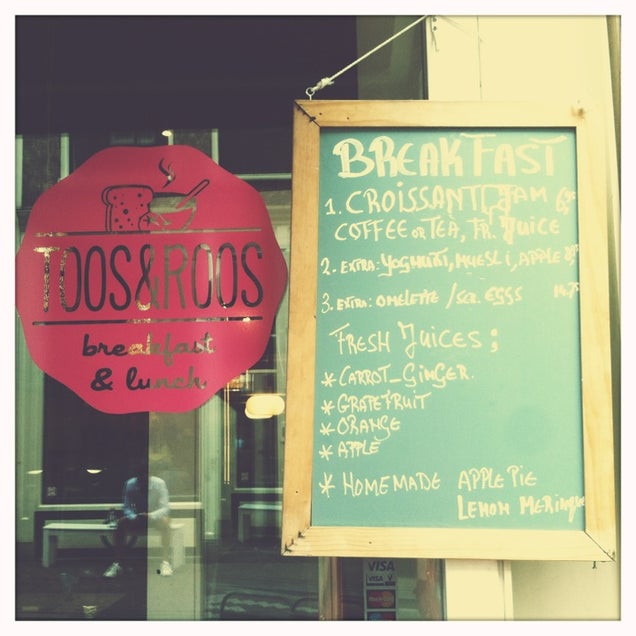 TOOS&ROOS
breakfast
& lunch
BREAKFAST
1. CROISSANT, JAM
COFFEE OR TEA, FR. JUICE
2. EXTRA: YOGHURT, MUESLI, APPLE
3. EXTRA: OMELETTE / SCR. EGGS
FRESH JUICES;
* CARROT_GINGER.
* GRAPEFRUIT
* ORANGE
* APPLE
* HOMEMADE APPLE PIE
LEMON MERINGUE
VISA
VISA
MasterCard